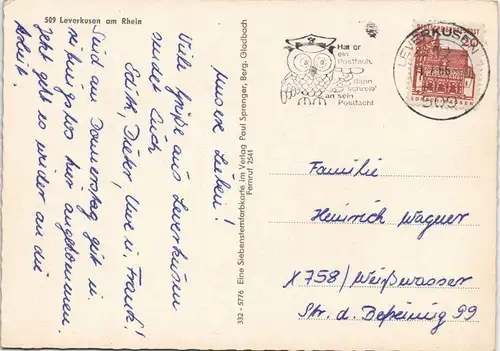 509 Leverkusen am Rhein
Unsere Lieben!
Viele Grüße aus Leverkusen
sendet Euch
Edith, Dieter, Uwe u. Frank!
Sind am Donnerstag gut u.
hier angekommen.
Jetzt geht es wieder an die
Arbeit.
332 - 5776 Eine Siebensternfarbkarte im Verlag Paul Sprenger, Berg. Gladbach
Fernruf 2541
Hat er
ein
Postfach,
dann
schreib'
an sein
Postfach!
LEVERKUSEN
509
Familie
Heinrich Wagner
X 758/ Weißwasser
Str. d. Befreiung 99